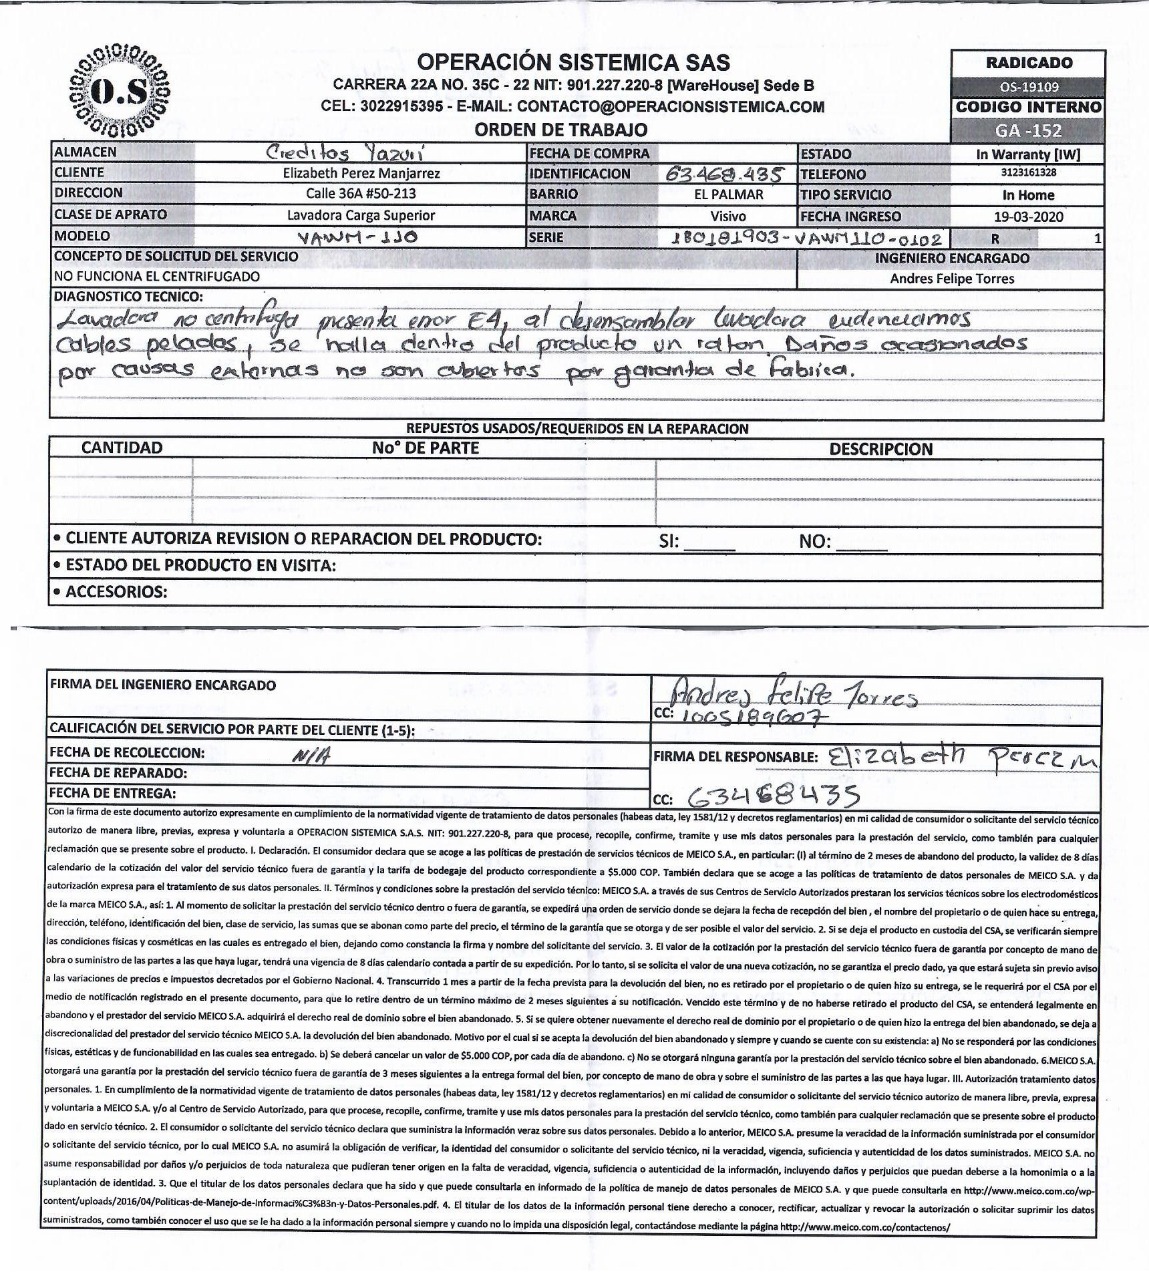 O.S
OPERACIÓN SISTEMICA SAS
CARRERA 22A NO. 35C - 22 NIT: 901.227.220-8 [WareHouse] Sede B
CEL: 3022915395 - E-MAIL: CONTACTO@OPERACIONSISTEMICA.COM
ORDEN DE TRABAJO
RADICADO
OS-19109
CODIGO INTERNO
GA -152
ALMACEN Creditos Yazuri FECHA DE COMPRA ESTADO In Warranty [IW]
CLIENTE Elizabeth Perez Manjarrez IDENTIFICACION 63.468.435 TELEFONO 3123161328
DIRECCION Calle 36A #50-213 BARRIO EL PALMAR TIPO SERVICIO In Home
CLASE DE APRATO Lavadora Carga Superior MARCA Visivo FECHA INGRESO 19-03-2020
MODELO VAWM-110 SERIE 180181903-VAWM110-0102 R 1
CONCEPTO DE SOLICITUD DEL SERVICIO INGENIERO ENCARGADO
NO FUNCIONA EL CENTRIFUGADO Andres Felipe Torres
DIAGNOSTICO TECNICO:
Lavadora no centrifuga presenta error E4, al desensamblar lavadora evidenciamos
cables pelados, se halla dentro del producto un raton. Daños ocasionados
por causas externas no son cubiertos por garantia de fabrica.
REPUESTOS USADOS/REQUERIDOS EN LA REPARACION
CANTIDAD No° DE PARTE DESCRIPCION
• CLIENTE AUTORIZA REVISION O REPARACION DEL PRODUCTO: SI: _____ NO: _____
• ESTADO DEL PRODUCTO EN VISITA:
• ACCESORIOS:
FIRMA DEL INGENIERO ENCARGADO Andres Felipe Torres
CC: 1005189607
CALIFICACIÓN DEL SERVICIO POR PARTE DEL CLIENTE (1-5):
FECHA DE RECOLECCION: N/A FIRMA DEL RESPONSABLE: Elizabeth Perez M
FECHA DE REPARADO:
FECHA DE ENTREGA: CC: 63468435
Con la firma de este documento autorizo expresamente en cumplimiento de la normatividad vigente de tratamiento de datos personales (habeas data, ley 1581/12 y decretos reglamentarios) en mi calidad de consumidor o solicitante del servicio técnico
autorizo de manera libre, previas, expresa y voluntaria a OPERACION SISTEMICA S.A.S. NIT: 901.227.220-8, para que procese, recopile, confirme, tramite y use mis datos personales para la prestación del servicio, como también para cualquier
reclamación que se presente sobre el producto. I. Declaración. El consumidor declara que se acoge a las políticas de prestación de servicios técnicos de MEICO S.A., en particular: (I) al término de 2 meses de abandono del producto, la validez de 8 días
calendario de la cotización del valor del servicio técnico fuera de garantía y la tarifa de bodegaje del producto correspondiente a $5.000 COP. También declara que se acoge a las políticas de tratamiento de datos personales de MEICO S.A. y da
autorización expresa para el tratamiento de sus datos personales. II. Términos y condiciones sobre la prestación del servicio técnico: MEICO S.A. a través de sus Centros de Servicio Autorizados prestaran los servicios técnicos sobre los electrodomésticos
de la marca MEICO S.A., así: 1. Al momento de solicitar la prestación del servicio técnico dentro o fuera de garantía, se expedirá una orden de servicio donde se dejara la fecha de recepción del bien , el nombre del propietario o de quien hace su entrega,
dirección, teléfono, identificación del bien, clase de servicio, las sumas que se abonan como parte del precio, el término de la garantía que se otorga y de ser posible el valor del servicio. 2. Si se deja el producto en custodia del CSA, se verificarán siempre
las condiciones físicas y cosméticas en las cuales es entregado el bien, dejando como constancia la firma y nombre del solicitante del servicio. 3. El valor de la cotización por la prestación del servicio técnico fuera de garantía por concepto de mano de
obra o suministro de las partes a las que haya lugar, tendrá una vigencia de 8 días calendario contada a partir de su expedición. Por lo tanto, si se solicita el valor de una nueva cotización, no se garantiza el precio dado, ya que estará sujeta sin previo aviso
a las variaciones de precios e impuestos decretados por el Gobierno Nacional. 4. Transcurrido 1 mes a partir de la fecha prevista para la devolución del bien, no es retirado por el propietario o de quien hizo su entrega, se le requerirá por el CSA por el
medio de notificación registrado en el presente documento, para que lo retire dentro de un término máximo de 2 meses siguientes a su notificación. Vencido este término y de no haberse retirado el producto del CSA, se entenderá legalmente en
abandono y el prestador del servicio MEICO S.A. adquirirá el derecho real de dominio sobre el bien abandonado. 5. Si se quiere obtener nuevamente el derecho real de dominio por el propietario o de quien hizo la entrega del bien abandonado, se deja a
discrecionalidad del prestador del servicio técnico MEICO S.A. la devolución del bien abandonado. Motivo por el cual si se acepta la devolución del bien abandonado y siempre y cuando se cuente con su existencia: a) No se responderá por las condiciones
físicas, estéticas y de funcionabilidad en las cuales sea entregado. b) Se deberá cancelar un valor de $5.000 COP, por cada día de abandono. c) No se otorgará ninguna garantía por la prestación del servicio técnico sobre el bien abandonado. 6.MEICO S.A.
otorgará una garantía por la prestación del servicio técnico fuera de garantía de 3 meses siguientes a la entrega formal del bien, por concepto de mano de obra y sobre el suministro de las partes a las que haya lugar. III. Autorización tratamiento datos
personales. 1. En cumplimiento de la normatividad vigente de tratamiento de datos personales (habeas data, ley 1581/12 y decretos reglamentarios) en mi calidad de consumidor o solicitante del servicio técnico autorizo de manera libre, previa, expresa
y voluntaria a MEICO S.A. y/o al Centro de Servicio Autorizado, para que procese, recopile, confirme, tramite y use mis datos personales para la prestación del servicio técnico, como también para cualquier reclamación que se presente sobre el producto
dado en servicio técnico. 2. El consumidor o solicitante del servicio técnico declara que suministra la información veraz sobre sus datos personales. Debido a lo anterior, MEICO S.A. presume la veracidad de la información suministrada por el consumidor
o solicitante del servicio técnico, por lo cual MEICO S.A. no asumirá la obligación de verificar, la identidad del consumidor o solicitante del servicio técnico, ni la veracidad, vigencia, suficiencia y autenticidad de los datos suministrados. MEICO S.A. no
asume responsabilidad por daños y/o perjuicios de toda naturaleza que pudieran tener origen en la falta de veracidad, vigencia, suficiencia o autenticidad de la información, incluyendo daños y perjuicios que puedan deberse a la homonimia o a la
suplantación de identidad. 3. Que el titular de los datos personales declara que ha sido y que puede consultarla en informado de la política de manejo de datos personales de MEICO S.A. y que puede consultarla en http://www.meico.com.co/wp-
content/uploads/2016/04/Politicas-de-Manejo-de-Informaci%C3%B3n-y-Datos-Personales.pdf. 4. El titular de los datos de la información personal tiene derecho a conocer, rectificar, actualizar y revocar la autorización o solicitar suprimir los datos
suministrados, como también conocer el uso que se le ha dado a la información personal siempre y cuando no lo impida una disposición legal, contactándose mediante la página http://www.meico.com.co/contactenos/